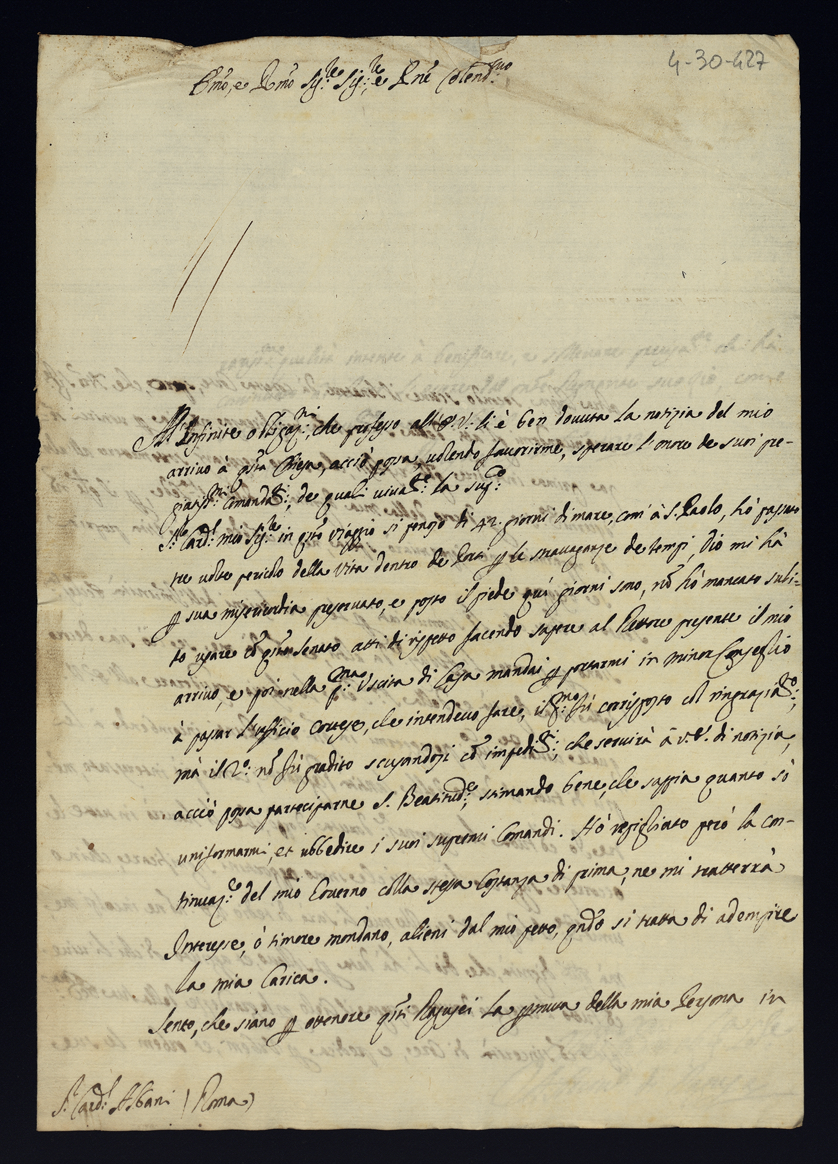 4-30-427
Emo, e Rmo Sig:re Sig:re, e Pne Colend:mo
All'Infinite obligaz:ni, che professo all'E:V: li è ben dovuta la notizia del mio
arrivo à q:sta Chiesa, acciò possa, volendo favorirmi, sperare l'onore de suoi pre-
giatis:mi Comanda:ti, de quali viva:te la sup:co
S:re Card:l mio Sig:re in q:sto viaggio si pongo di 42. giorni di mare, com'à S. Paolo, hò passato
tre volte pericolo della vita dentro de Porti p le stravaganze de tempi, Dio mi hà
p sua misericordia preservato, e posto il piede quì giorni sono, nõ hò mancato subi-
to usare cõ q:sto Senato atti di rispetto facendo sapere al Rettore presente il mio
arrivo, e poi nella p:ma Uscita di Casa mandai p portarmi in minor Conseglio
à passar l'ufficio Cortese, che intendevo fare, il p:mo fù corrisposto col ringrazia:to,
mà il 2:o nõ fù gradito scusandosi cõ impedi:ti, che servirà à V:E: di notizia,
acciò possa participarne S. Beatitud:e, stimando bene, che sappia quanto sò
uniformarmi, et ubbedire i suoi supremi Comandi. Hò ripigliato però la con-
tinuaz:e del mio Governo colla stessa Costanza di prima, ne mi tratterrà
Interesse, ò timore mondano, alieni dal mio petto, qndo si tratta di adempire
la mia Carica.
Sento, che siano p ottenere q:sti Ragusei la pmuta della mia Persona in
S:r Card:l Albani (Roma)